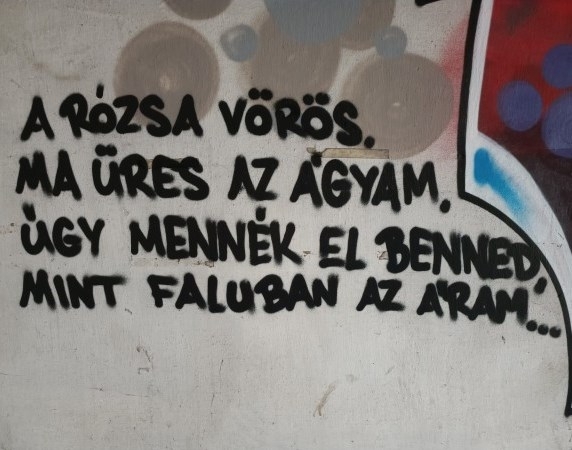 A RÓZSA VÖRÖS.
MA ÜRES AZ ÁGYAM.
ÚGY MENNÉK EL BENNED,
MINT FALUBAN AZ ÁRAM...